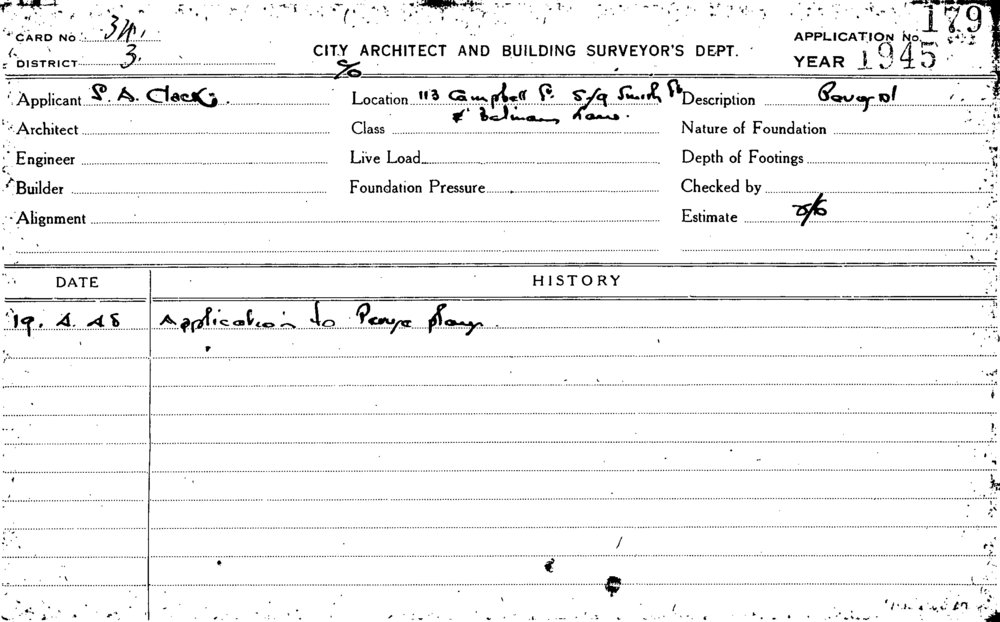 CARD No 34.
APPLICATION No. 179
CITY ARCHITECT AND BUILDING SURVEYOR'S DEPT.
DISTRICT 3.
YEAR 1945
c/o
Applicant
Location 113 Campbell St. Smith St
& Batmans Lane.
Description
Architect
Class
Nature of Foundation
Engineer
Live Load
Depth of Footings
Builder
Foundation Pressure
Checked by
Alignment
Estimate
DATE HISTORY
19. 4. 45 Application to Peruse plans.